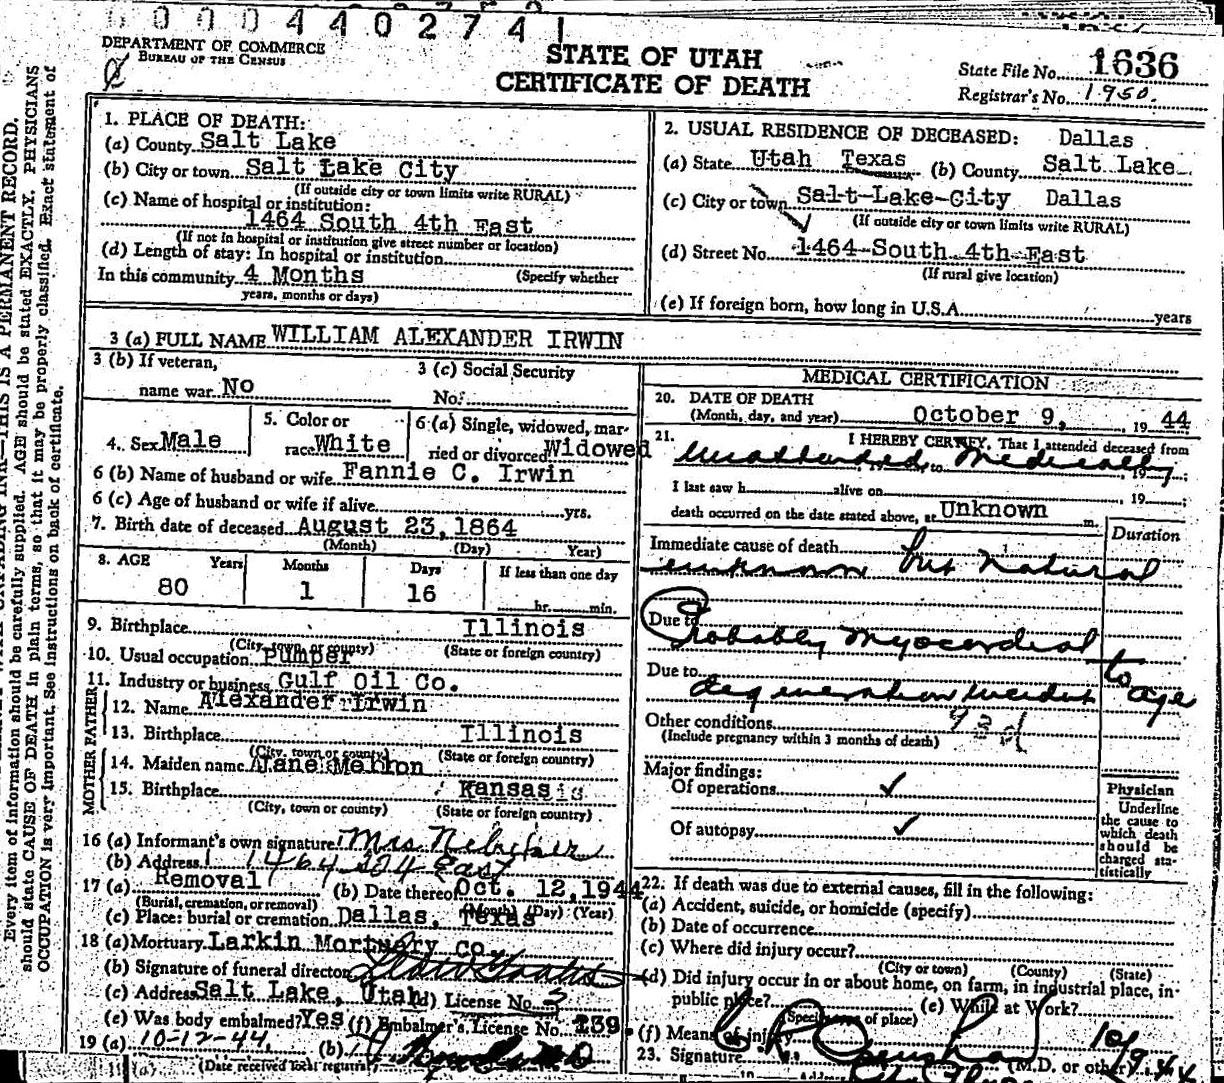 0000440274
DEPARTMENT OF COMMERCE
BUREAU OF THE CENSUS
STATE OF UTAH
CERTIFICATE OF DEATH
State File No. 1636
Registrar's No. 1950.
Every item of information should be carefully supplied. AGE should be stated EXACTLY. PHYSICIANS
should state CAUSE OF DEATH in plain terms, so that it may be properly classified. Exact statement of
OCCUPATION is very important. See instructions on back of certificate.
THIS IS A PERMANENT RECORD.
1. PLACE OF DEATH:
(a) County Salt Lake
(b) City or town Salt Lake City
(If outside city or town limits write RURAL)
(c) Name of hospital or institution:
1464 South 4th East
(If not in hospital or institution give street number or location)
(d) Length of stay: In hospital or institution
In this community 4 Months (Specify whether
years, months or days)
2. USUAL RESIDENCE OF DECEASED: Dallas
(a) State Utah Texas (b) County Salt Lake
(c) City or town Salt Lake City Dallas
(If outside city or town limits write RURAL)
(d) Street No. 1464 South 4th East
(If rural give location)
(e) If foreign born, how long in U.S.A. years
3 (a) FULL NAME WILLIAM ALEXANDER IRWIN
3 (b) If veteran,
name war No
3 (c) Social Security
No.
4. Sex Male
5. Color or
race White
6 (a) Single, widowed, mar-
ried or divorced Widowed
6 (b) Name of husband or wife Fannie C. Irwin
6 (c) Age of husband or wife if alive yrs.
7. Birth date of deceased August 23, 1864
(Month) (Day) Year)
8. AGE Years Months Days If less than one day
80 1 16 hr. min.
9. Birthplace Illinois
(City, town, or county) (State or foreign country)
10. Usual occupation Pumper
11. Industry or business Gulf Oil Co.
FATHER
12. Name Alexander Irwin
13. Birthplace Illinois
(City, town or county) (State or foreign country)
MOTHER
14. Maiden name Jane Melton
15. Birthplace Kansas
(City, town or county) (State or foreign country)
16 (a) Informant's own signature Mrs. Nebeker
(b) Address 1464 So 4 East
17 (a) Removal (b) Date thereof Oct. 12, 1944
(Burial, cremation, or removal) (Month) (Day) (Year)
(c) Place: burial or cremation Dallas, Texas
18 (a) Mortuary Larkin Mortuary Co.
(b) Signature of funeral director
(c) Address Salt Lake, Utah (d) License No. 3
(e) Was body embalmed? Yes (f) Embalmer's License No. 139.
19 (a) 10-12-44 (b)
(Date received local registrar)
MEDICAL CERTIFICATION
20. DATE OF DEATH
(Month, day, and year) October 9, 19 44
21. I HEREBY CERTIFY, That I attended deceased from
Unattended to Medically, 19
I last saw h alive on 19 ;
death occurred on the date stated above, at Unknown m.
Duration
Immediate cause of death
unknown but natural
Due to
Probably myocardial
Due to
degeneration incident to age
Other conditions 93d
(Include pregnancy within 3 months of death)
Major findings:
Of operations ✓
Of autopsy ✓
Physician
Underline
the cause to
which death
should be
charged sta-
tistically
22. If death was due to external causes, fill in the following:
(a) Accident, suicide, or homicide (specify)
(b) Date of occurrence
(c) Where did injury occur?
(City or town) (County) (State)
(d) Did injury occur in or about home, on farm, in industrial place, in
public place? (e) While at Work?
(Specify type of place)
(f) Means of injury
23. Signature (M.D. or other) 10/9 44
Address